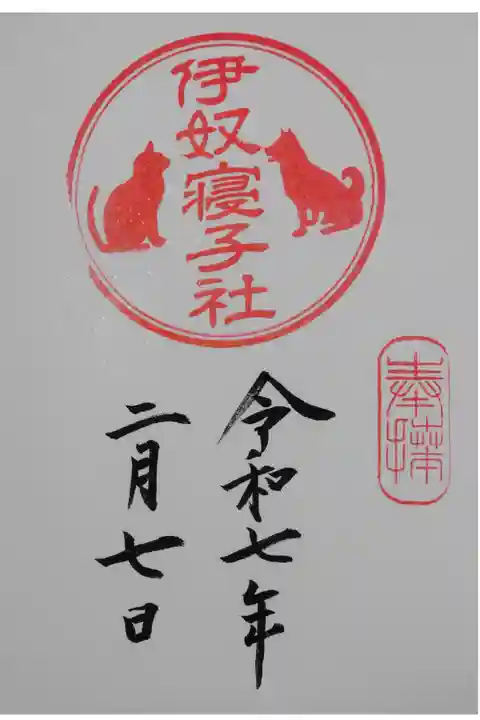 奉拝
伊奴寝子社
令和七年
二月七日